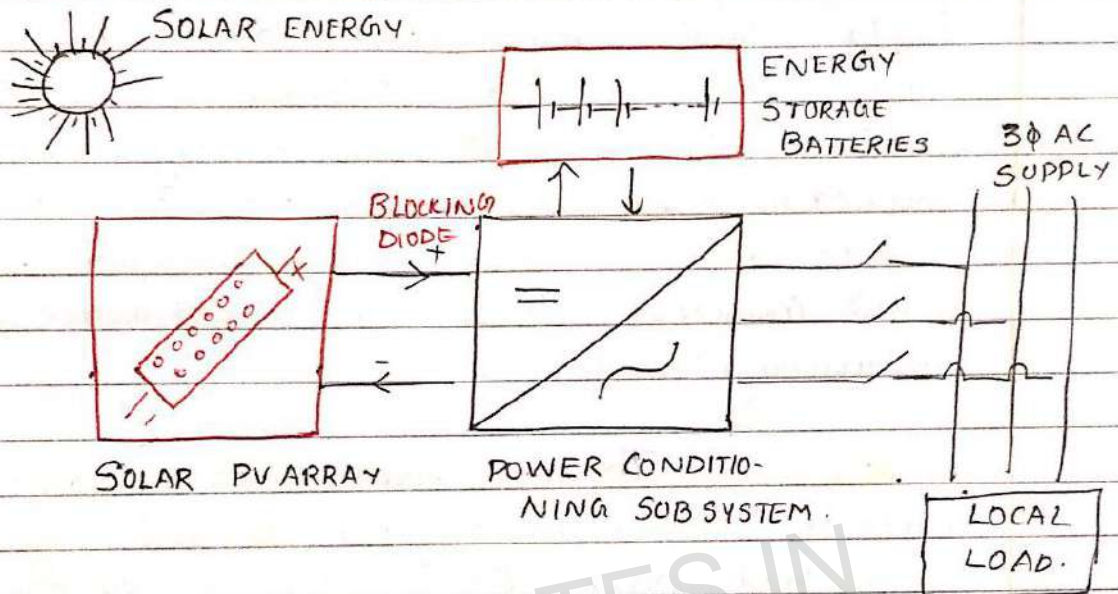 SOLAR ENERGY.
ENERGY
STORAGE
BATTERIES
3φ AC
SUPPLY
BLOCKING
DIODE
+
-
+
SOLAR PV ARRAY
POWER CONDITIO-
NING SUBSYSTEM.
LOCAL
LOAD.